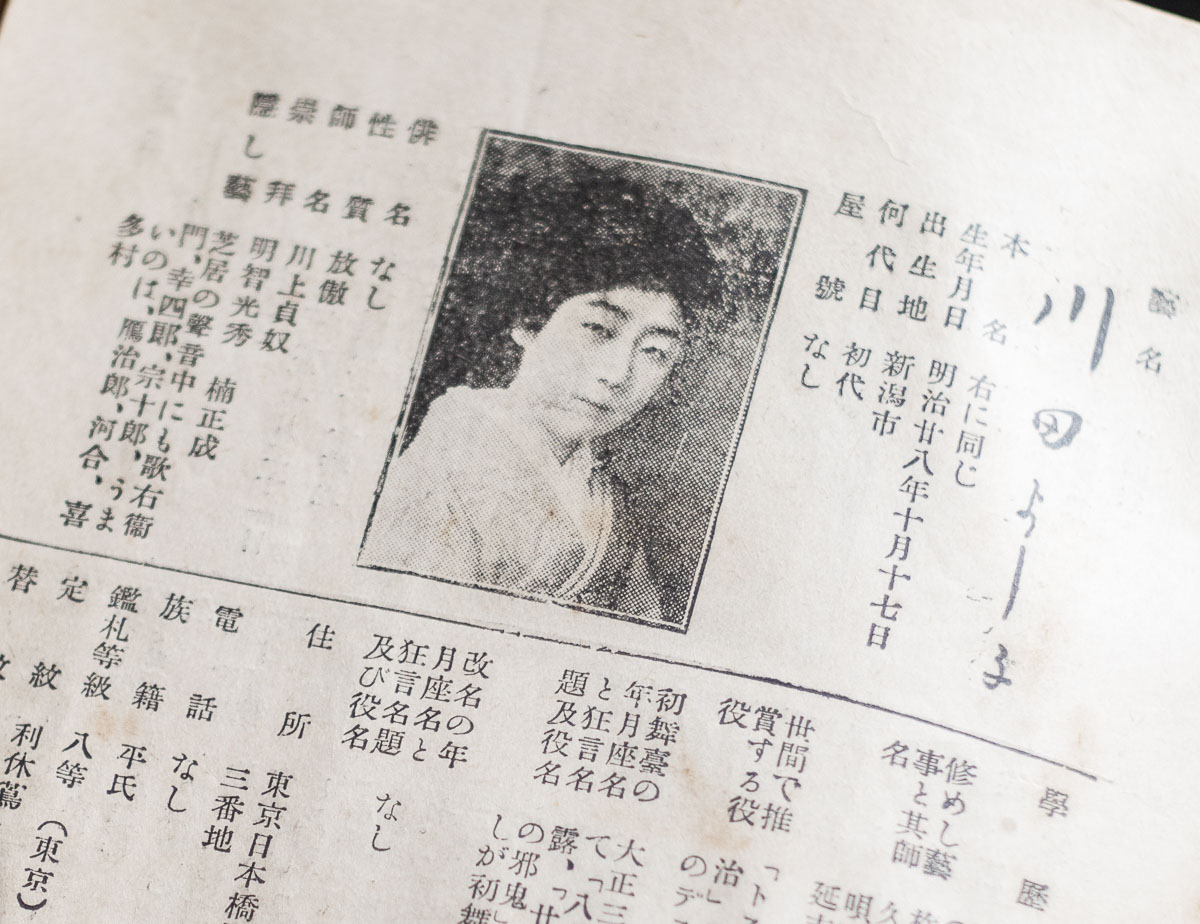 藝名
川田よし子
本名 右に同じ
生年月日 明治廿八年十月十七日
出生地 新潟市
何代目 初代
屋號 なし
俳名 なし
性質 放傲
師名 川上貞奴
崇拜 明智光秀 楠正成
隱し藝 芝居の聲音中にも歌右衞
門、幸四郎、宗十郎、うま
いのは、鴈治郎、河合、喜
多村
學歷
修めし藝
事と其師
名
世間で推
賞する役
役
初舞臺の
年月座名
と狂言名
題及役名
大正三
て「八
露、「廿
の邪鬼」
しが初舞
改名の年
月座名と
狂言名題
及び役名
なし
住所 東京日本橋
三番地
電話 なし
族籍 平氏
鑑札等級 八等
定紋 利休蔦
替
(東京)